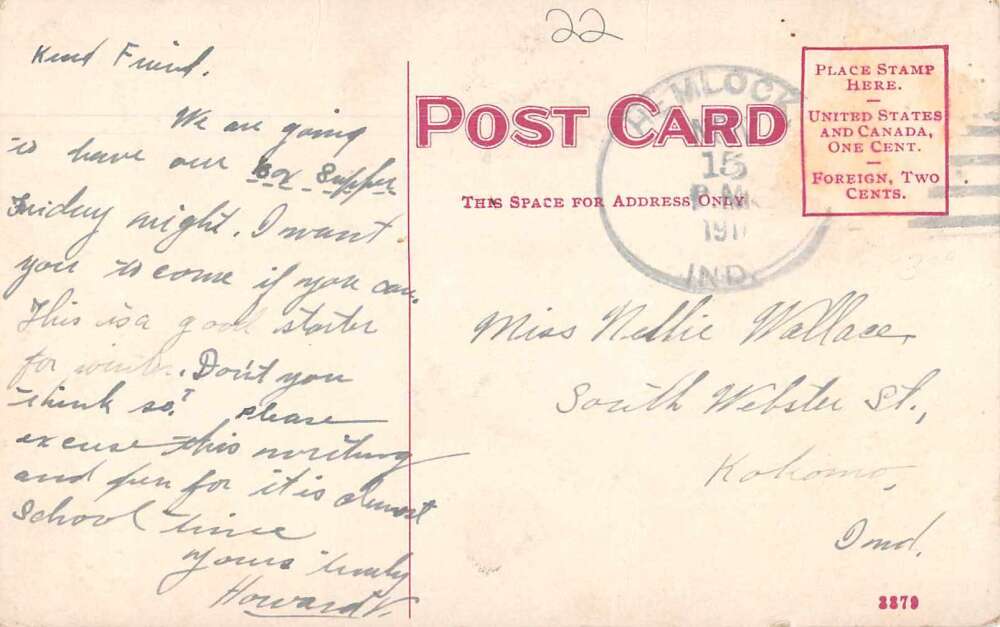 22
Kind Friend.
We are going
to have our Box Supper
Friday night. I want
you to come if you can.
This is a good starter
for winter. Don't you
think so? Please
excuse this writing
and pen for it is almost
School time
Yours truly
Howard V.
POST CARD
THIS SPACE FOR ADDRESS ONLY
PLACE STAMP
HERE.
UNITED STATES
AND CANADA,
ONE CENT.
FOREIGN, TWO
CENTS.
HEMLOCK
15
P.M.
191
IND.
Miss Nellie Wallace,
South Webster St.,
Kokomo,
Ind.
3379